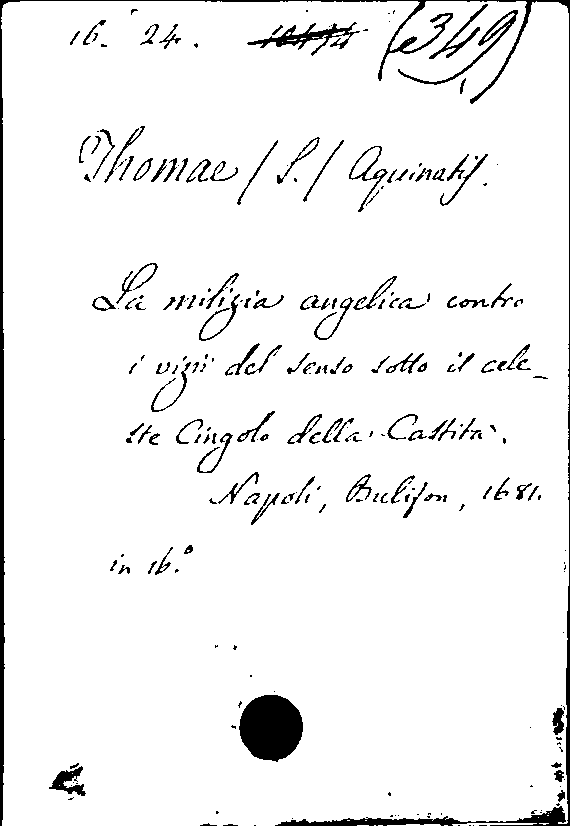 16. 24. (349)
Thomae / S. / Aquinatis.
La milizia angelica contro
i vizii del senso sotto il cele-
ste Cingolo della Castità.
Napoli, Bulifon, 1681.
in 16.°